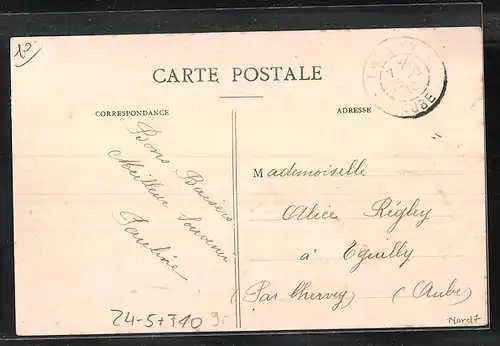 CARTE POSTALE
CORRESPONDANCE
ADRESSE
AUBE
Bons Baisers
Meilleur Souvenir
Pauline
Mademoiselle
Alice Régley
à Eguilly
(Par Chervey) (Aube)
24-5+T10
Nord7